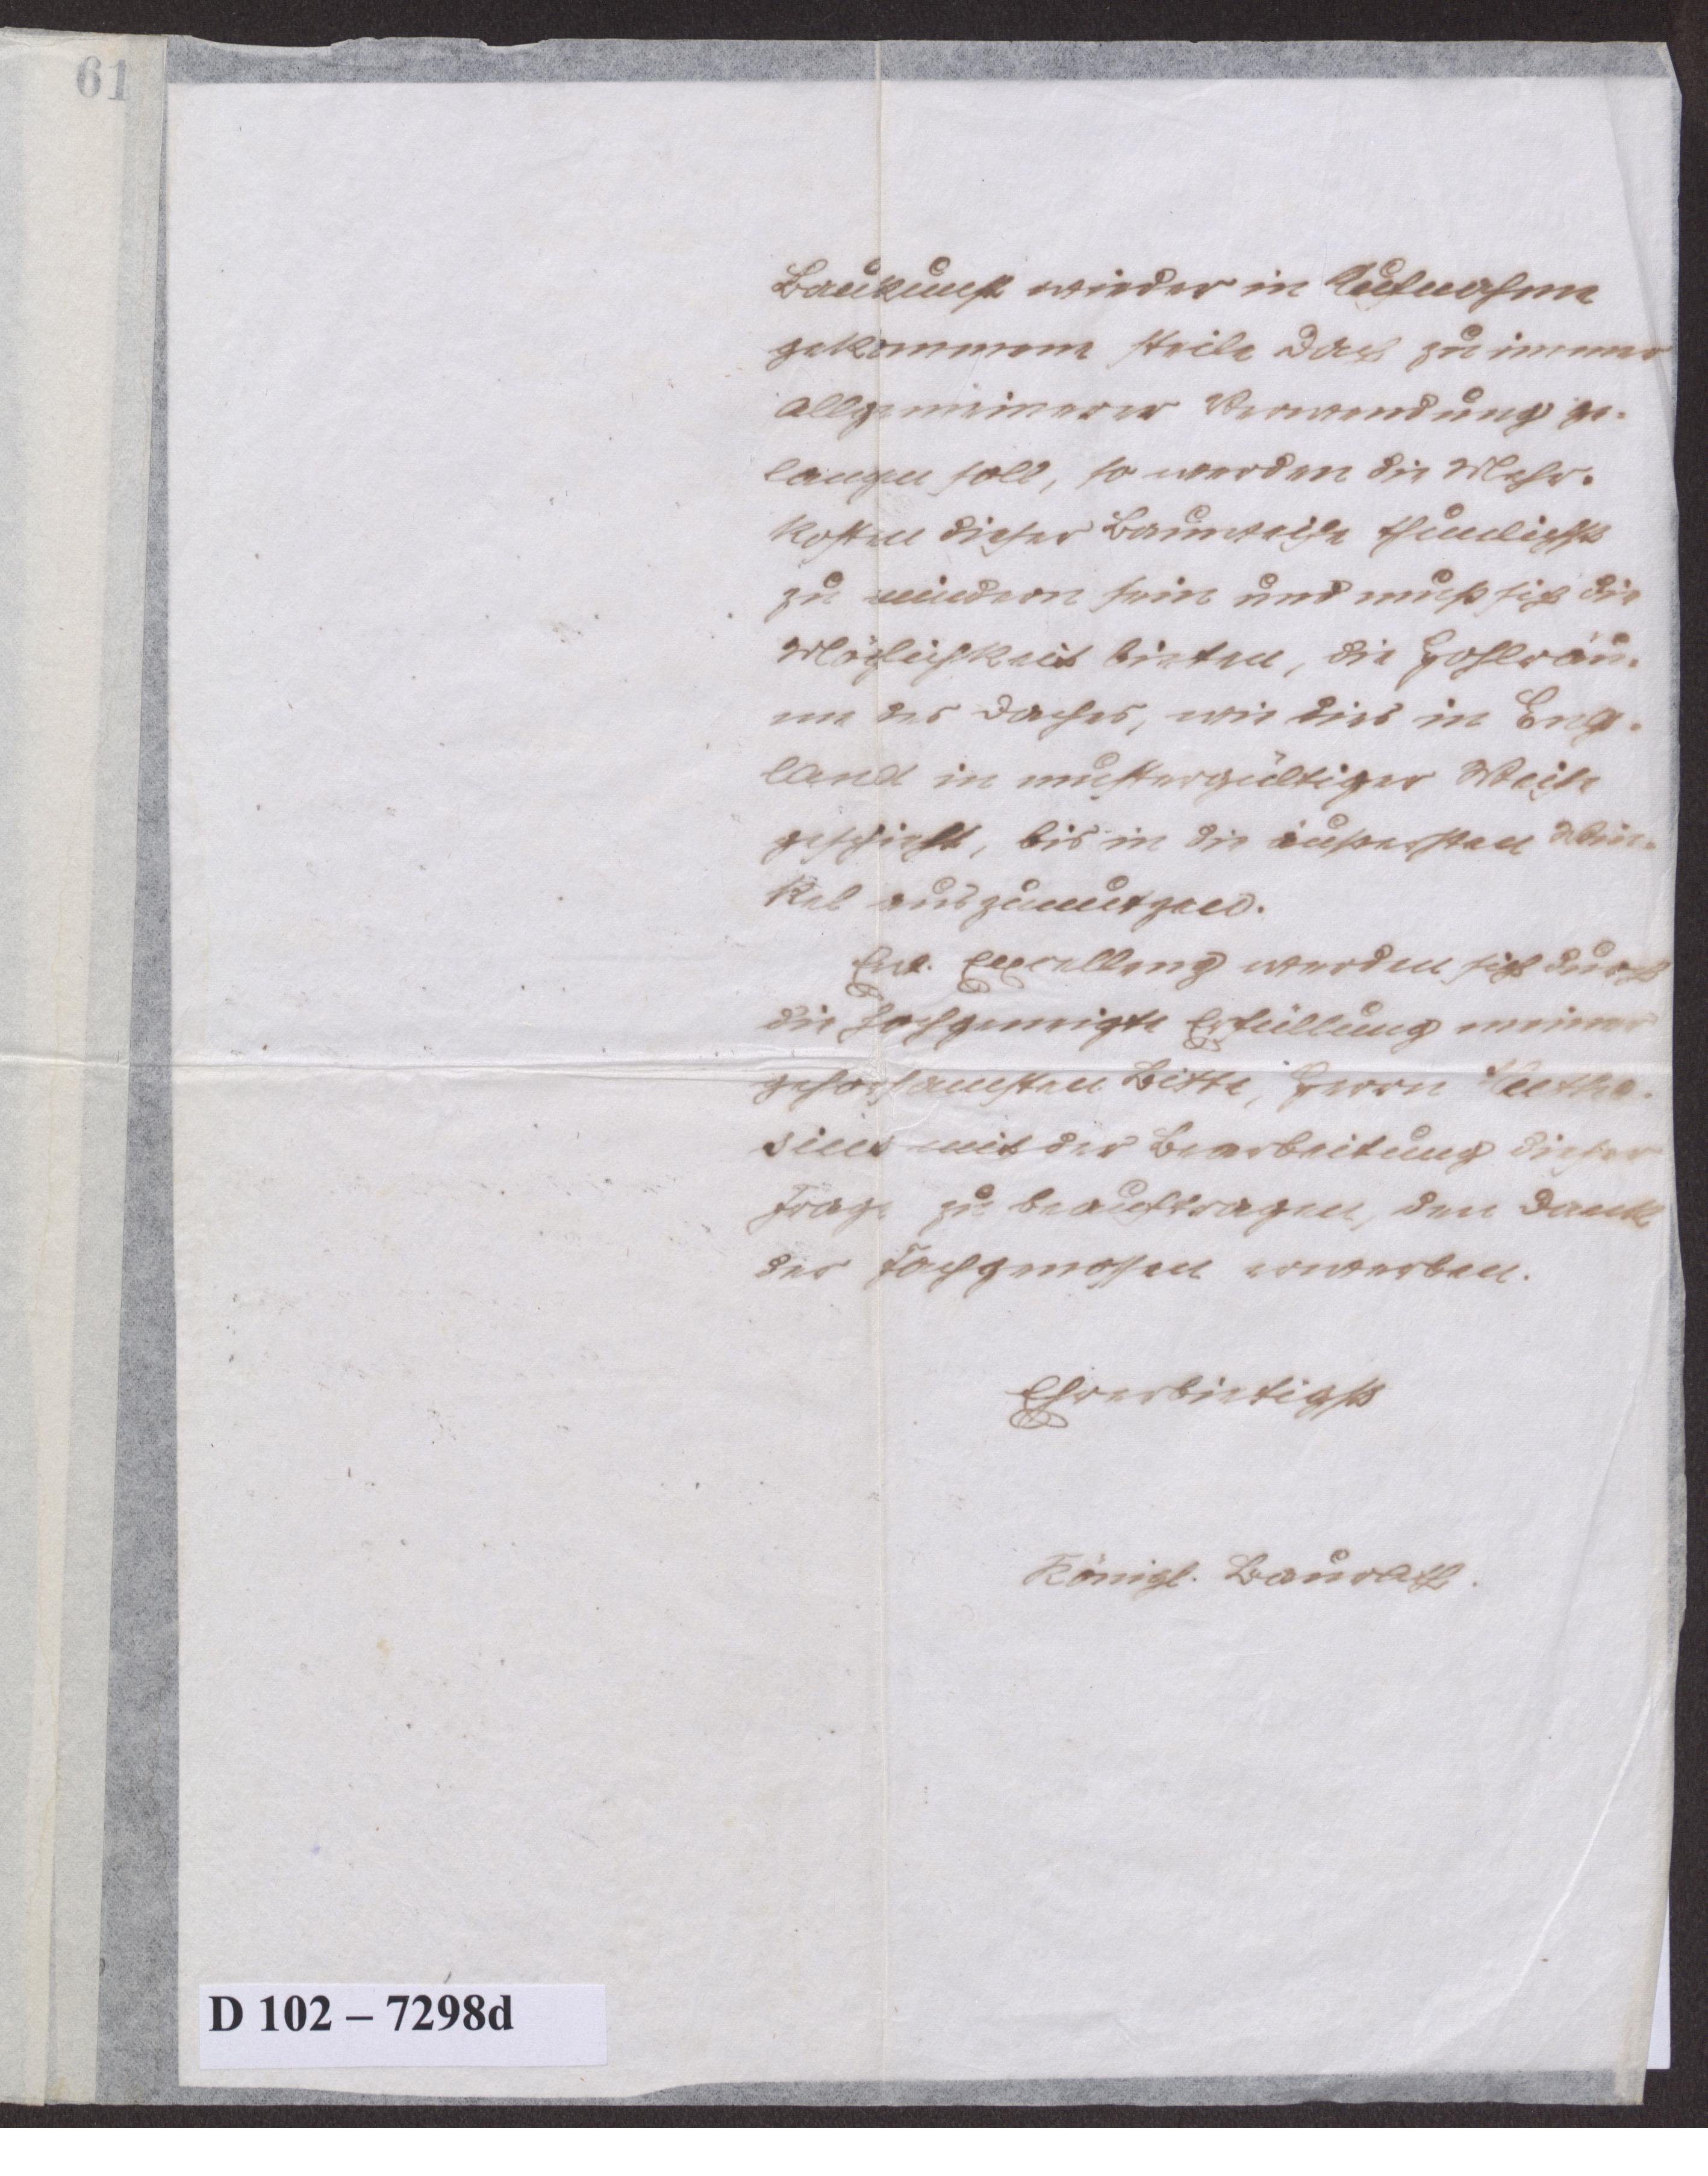 61
Baukunst wieder in Aufnahme
gekommene steile Dach zu immer
allgemeinerer Verwendung ge-
langen soll, so werden die Mehr-
kosten dieser Bauweise thunlichst
zu mindern sein und muß sich die
Möglichkeit bieten, die Hohlräu-
me des Daches, wie dies in Eng-
land in mustergültiger Weise
geschieht, bis in die äußersten Win-
kel auszunutzen.
Ew. Excellenz werden sich durch
die hochgeneigte Erfüllung meiner
gehorsamsten Bitte, Herrn Muthe-
sius mit der Bearbeitung dieser
Frage zu beauftragen, den Dank
der Fachgenossen erwerben.
Ehrerbietigst
Königl. Baurath.
D 102 – 7298d